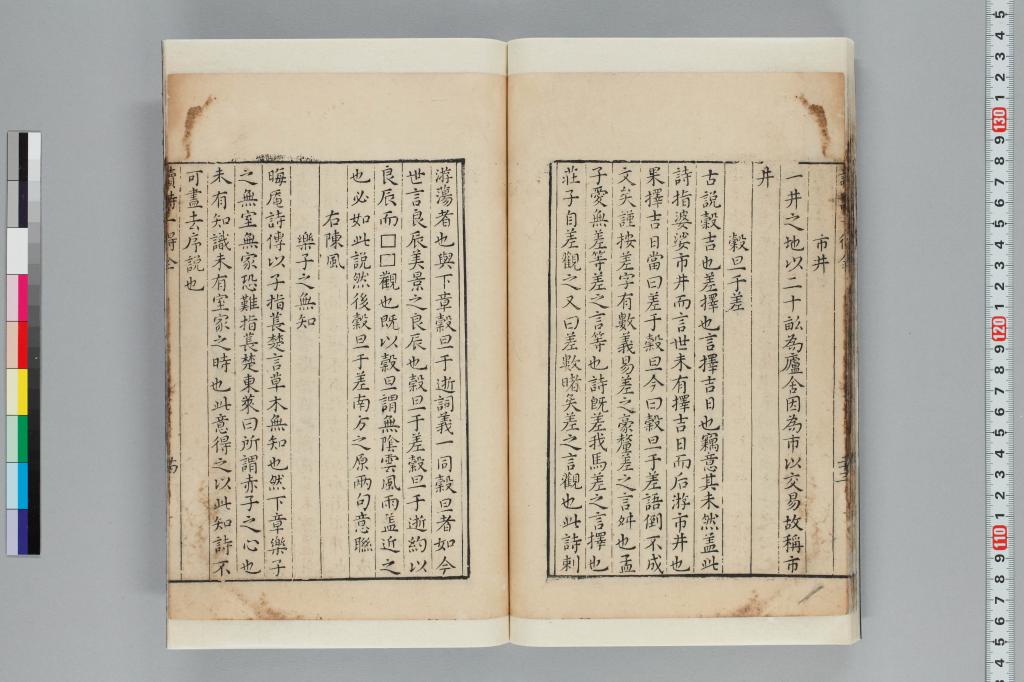 市井
一井之地以二十畝為廬舍因為市以交易故稱市
井
穀旦于差
古說穀吉也差擇也言擇吉日也竊意其未然盖此
詩指婆娑市井而言世未有擇吉日而后游市井也
果擇吉日當曰差于穀旦今曰穀旦于差語倒不成
文矣謹按差字有數義易差之豪釐差之言舛也孟
子愛無差等差之言等也詩既差我馬差之言擇也
莊子自差觀之又曰差數睹矣差之言觀也此詩刺
游蕩者也與下章穀旦于逝詞義一同穀旦者如今
世言良辰美景之良辰也穀旦于差穀旦于逝約以
良辰而□□觀也既以穀旦謂無陰雲風雨盖近之
也必如此說然後穀旦于差南方之原兩句意聯
右陳風
樂子之無知
晦菴詩傳以子指萇楚言草木無知也然下章樂子
之無室無家恐難指萇楚東萊曰所謂赤子之心也
未有知識未有室家之時也此意得之以此知詩不
可盡去序說也
讀詩一得全